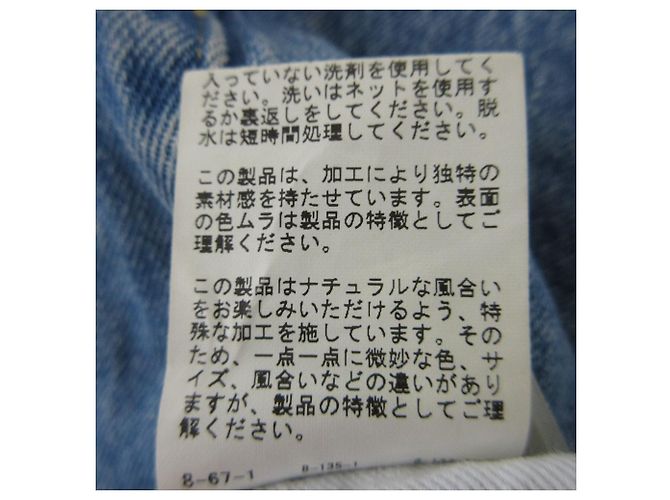 入っていない洗剤を使用してく
ださい。洗いはネットを使用す
るか裏返しをしてください。脱
水は短時間処理してください。
この製品は、加工により独特の
素材感を持たせています。表面
の色ムラは製品の特徴としてご
理解ください。
この製品はナチュラルな風合い
をお楽しみいただけるよう、特
殊な加工を施しています。その
ため、一点一点に微妙な色、サ
イズ、風合いなどの違いがあり
ますが、製品の特徴としてご理
解ください。
8-67-1 8-135-1